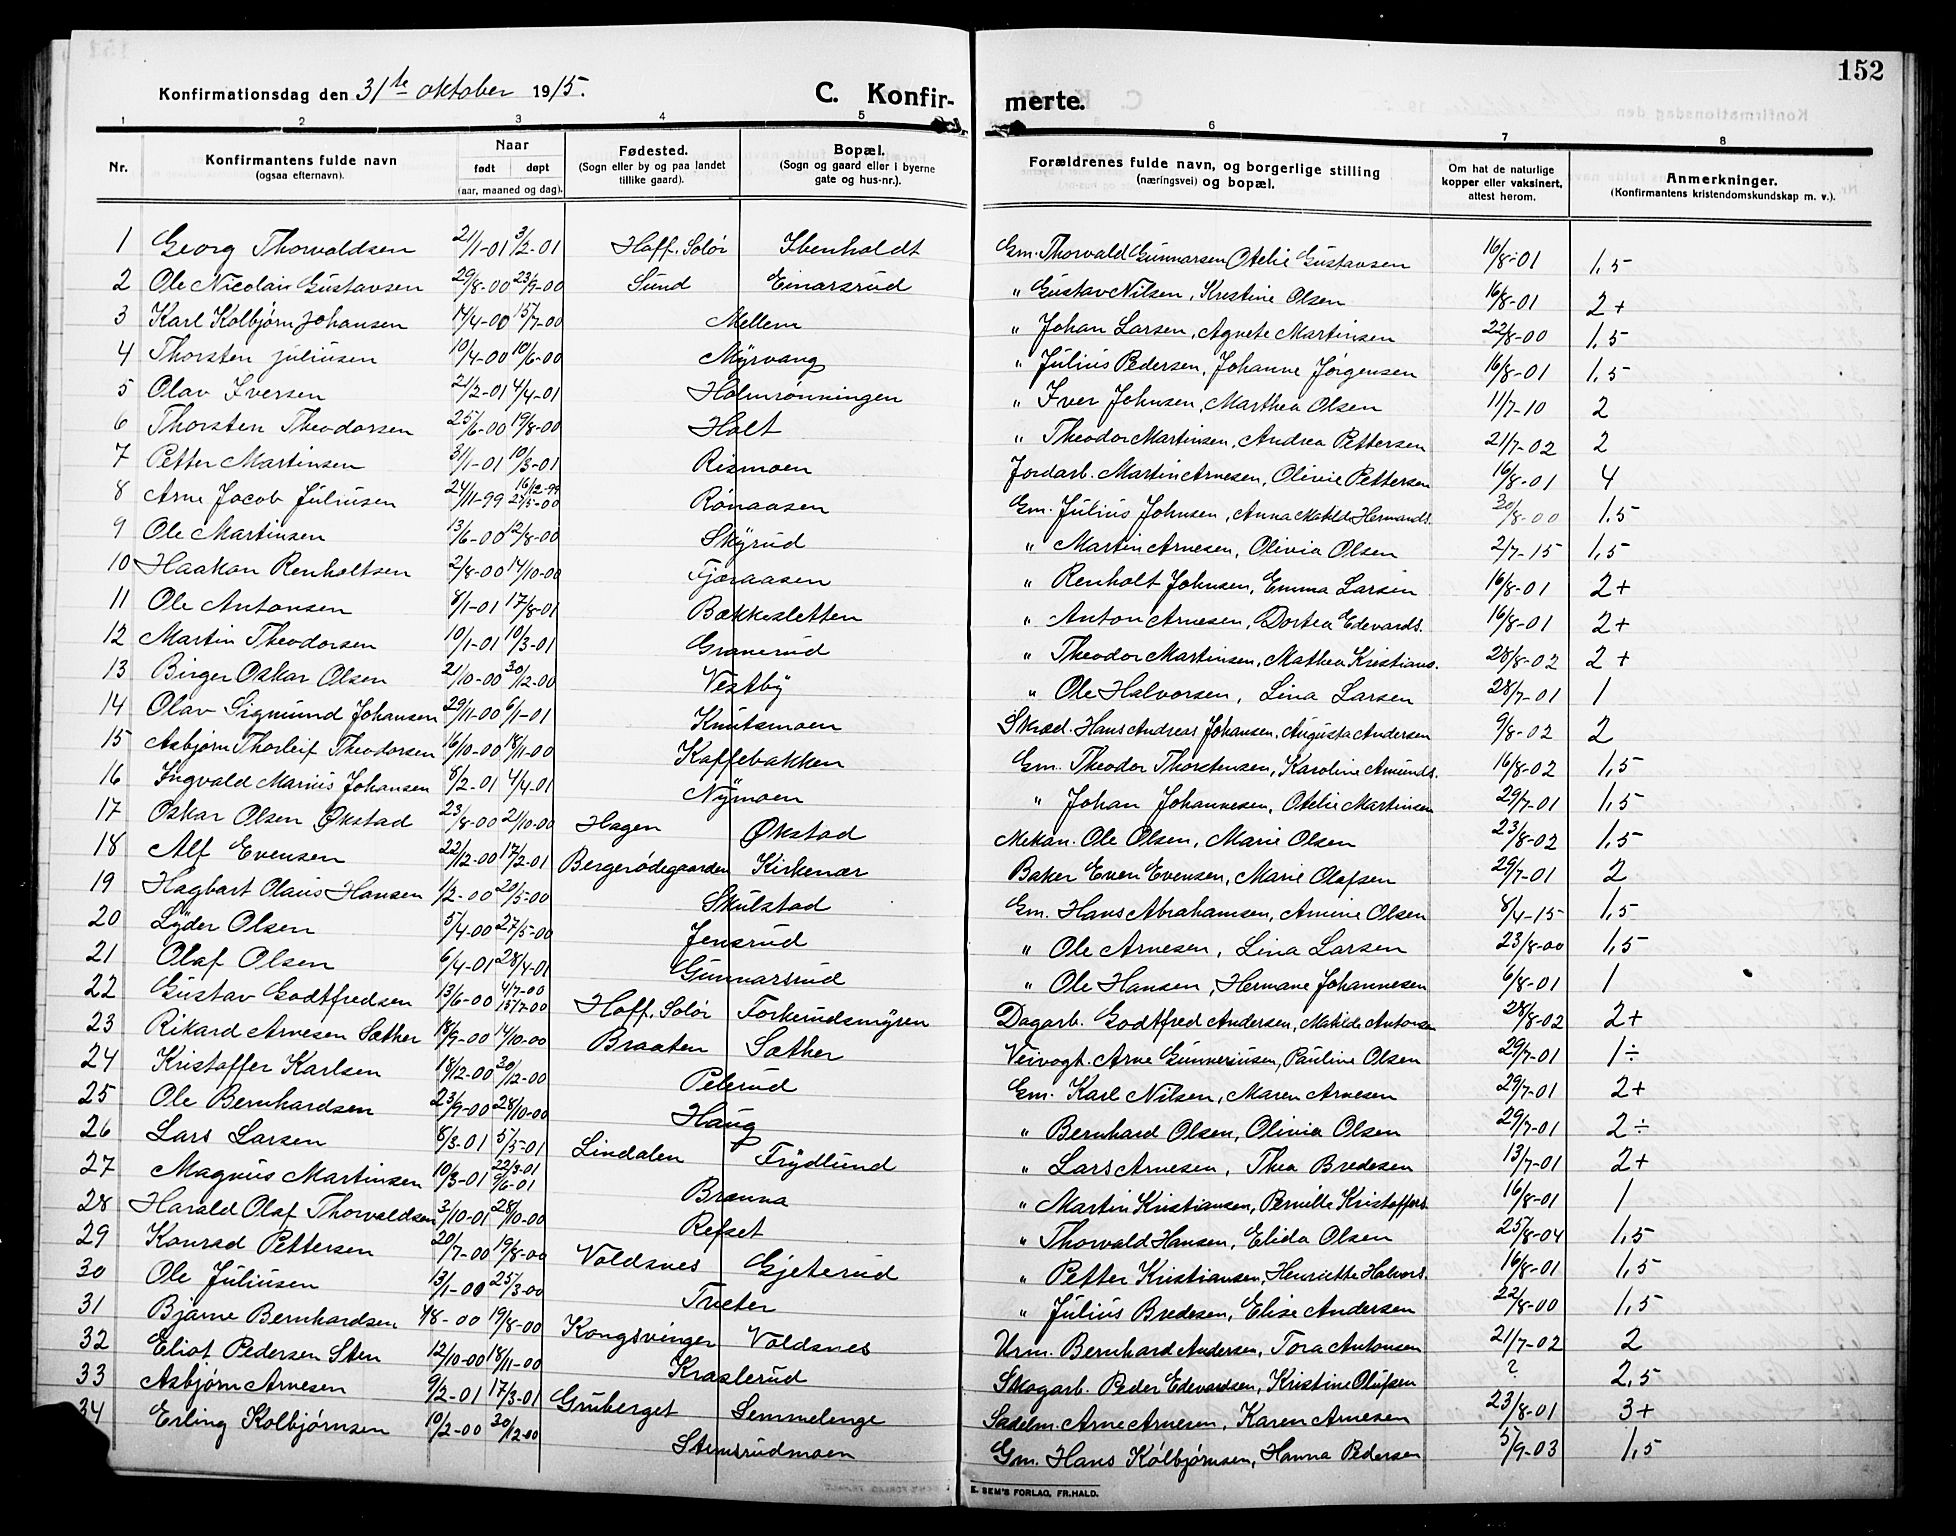 152
Konfirmationsdag den 31te oktober 1915.
C. Konfirmerte.
1 2 3 4 5 6 7 8
Nr. Konfirmantens fulde navn (ogsaa efternavn). Naar født døpt (aar, maaned og dag). Fødested. (Sogn eller by og paa landet tillike gaard). Bopæl. (Sogn og gaard eller i byerne gate og hus-nr.). Forældrenes fulde navn, og borgerlige stilling (næringsvei) og bopæl. Om hat de naturlige kopper eller vaksinert, attest herom. Anmerkninger. (Konfirmantens kristendomskundskap m. v.).
1 Georg Thorvaldsen 2/1-01 3/2-01 Hoff. Solør Ibenholdt Gm. Thorvald Gunnarsen Otelie Gustavsen 16/8-01 1,5
2 Ole Nicolai Gustavsen 29/8-00 23/9-00 Sund Einarsrud " Gustav Nilsen, Kristine Olsen 16/8-01 2+
3 Karl Kolbjørn Johansen 17/4-00 15/7-00 Mellem " Johan Larsen, Agnete Martinsen 22/8-00 1,5
4 Thorsten Juliusen 10/4-00 10/6-00 Myrvang " Julius Pedersen, Johanne Jørgensen 16/8-01 1,5
5 Olav Iversen 21/2-01 4/4-01 Holmrønningen " Iver Johnsen, Marthea Olsen 11/7-10 2
6 Thorsten Theodorsen 25/6-00 19/8-00 Holt " Theodor Martinsen, Andrea Pettersen 21/7-02 2
7 Petter Martinsen 31/1-01 10/3-01 Rismoen Jordarb. Martin Arnesen, Olivie Pettersen 16/8-01 4
8 Arne Jacob Juliusen 24/11-99 16/12-99 27/5-00 Rønaasen Gm. Julius Johnsen, Anna Matild Hermands. 30/8-00 1.5
9 Ole Martinsen 13/6-00 12/8-00 Skyrud " Martin Arnesen, Olivia Olsen 2/7-15 1,5
10 Haakon Renholtsen 2/8-00 14/10-00 Tjæraasen " Renholt Johnsen, Emma Larsen 16/8-01 2+
11 Ole Antonsen 8/1-01 17/8-01 Bakkesletten " Anton Arnesen, Dortea Edevards. 16/8-01 2+
12 Martin Theodorsen 10/1-01 10/3-01 Granerud " Theodor Martinsen, Mathea Kristians. 28/8-02 2+
13 Birger Oskar Olsen 21/10-00 30/12-00 Vestby " Ole Halvorsen, Lina Larsen 28/7-01 1
14 Olav Sigmund Johansen 29/11-00 6/1-01 Knutsmoen Skræd. Hans Andreas Johansen, Augusta Andersen 9/8-02 2
15 Asbjørn Thorleif Theodorsen 16/10-00 18/11-00 Kaffebakken Gm. Theodor Thorstensen, Karoline Amunds. 16/8-02 1,5
16 Ingvald Marius Johansen 8/2-01 4/4-01 Nymoen " Johan Johannesen, Otelie Martinsen 29/7-01 1,5
17 Oskar Olsen Økstad 23/8-00 21/10-00 Hagen Økstad Mekan. Ole Olsen, Marie Olsen 23/8-02 1,5
18 Alf Evensen 22/12-00 17/2-01 Bergerødegaarden Kirkenær Baker Even Evensen, Marie Olafsen 29/7-01 2
19 Hagbart Olaus Hansen 1/2-00 20/5-00 Skulstad Gm. Hans Abrahamsen, Amine Olsen 8/4-15 1,5
20 Lyder Olsen 5/4-00 27/5-00 Jensrud " Ole Arnesen, Lina Larsen 23/8-00 1,5
21 Olaf Olsen 6/4-01 28/4-01 Gunnarsrud " Ole Hansen, Hermane Johannesen 6/8-01 1
22 Gustav Godtfredsen 13/6-00 4/7-00 15/7-00 Hoff. Solør Torkerudsmyren Dagarb. Godtfred Andersen, Matilde Antonsen 28/8-02 2+
23 Rikard Arnesen Sæther 18/9-00 14/10-00 Braaten Sæther Veivogt. Arne Gunneriusen, Pauline Olsen 29/7-01 1÷
24 Kristoffer Karlsen 18/12-00 30/12-00 Pelerud Gm. Karl Nilsen, Maren Arnesen 29/7-01 2+
25 Ole Bernhardsen 23/9-00 28/10-00 Haug " Bernhard Olsen, Olivia Olsen 29/7-01 2÷
26 Lars Larsen 8/3-01 5/5-01 Lindalen Frydlund " Lars Arnesen, Thea Bredesen 13/7-01 2+
27 Magnus Martinsen 10/3-01 22/3-01 9/6-01 Brænna " Martin Kristiansen, Pernille Kristoffers. 16/8-01 1
28 Harald Olaf Thorvaldsen 3/10-01 28/10-00 Refset " Thorvald Hansen, Elida Olsen 25/8-04 1,5
29 Konrad Pettersen 20/7-00 19/8-00 Voldsnes Gjeterud " Petter Kristiansen, Henriette Halvors. 16/8-01 1,5
30 Ole Juliusen 13/1-00 25/3-00 Tveter " Julius Bredesen, Elise Andersen 22/8-00 1,5
31 Bjarne Bernhardsen 4/8-00 19/8-00 Kongsvinger Voldsnes Urm. Bernhard Andersen, Tora Antonsen 21/7-02 2
32 Eliot Pedersen Sten 12/10-00 18/11-00 Kraslerud Skogarb. Peder Edevardsen, Kristine Olufsen ? 2,5
33 Asbjørn Arnesen 9/2-01 17/3-01 Gruberget Semmelenge Sadelm. Arne Arnesen, Karen Arnesen 23/8-01 3+
34 Erling Kolbjørnsen 10/2-00 30/12-00 Stensrudmoen Gm. Hans Kolbjørnsen, Hanna Pedersen 5/9-03 1,5
E. SEM'S FORLAG, FR.HALD.